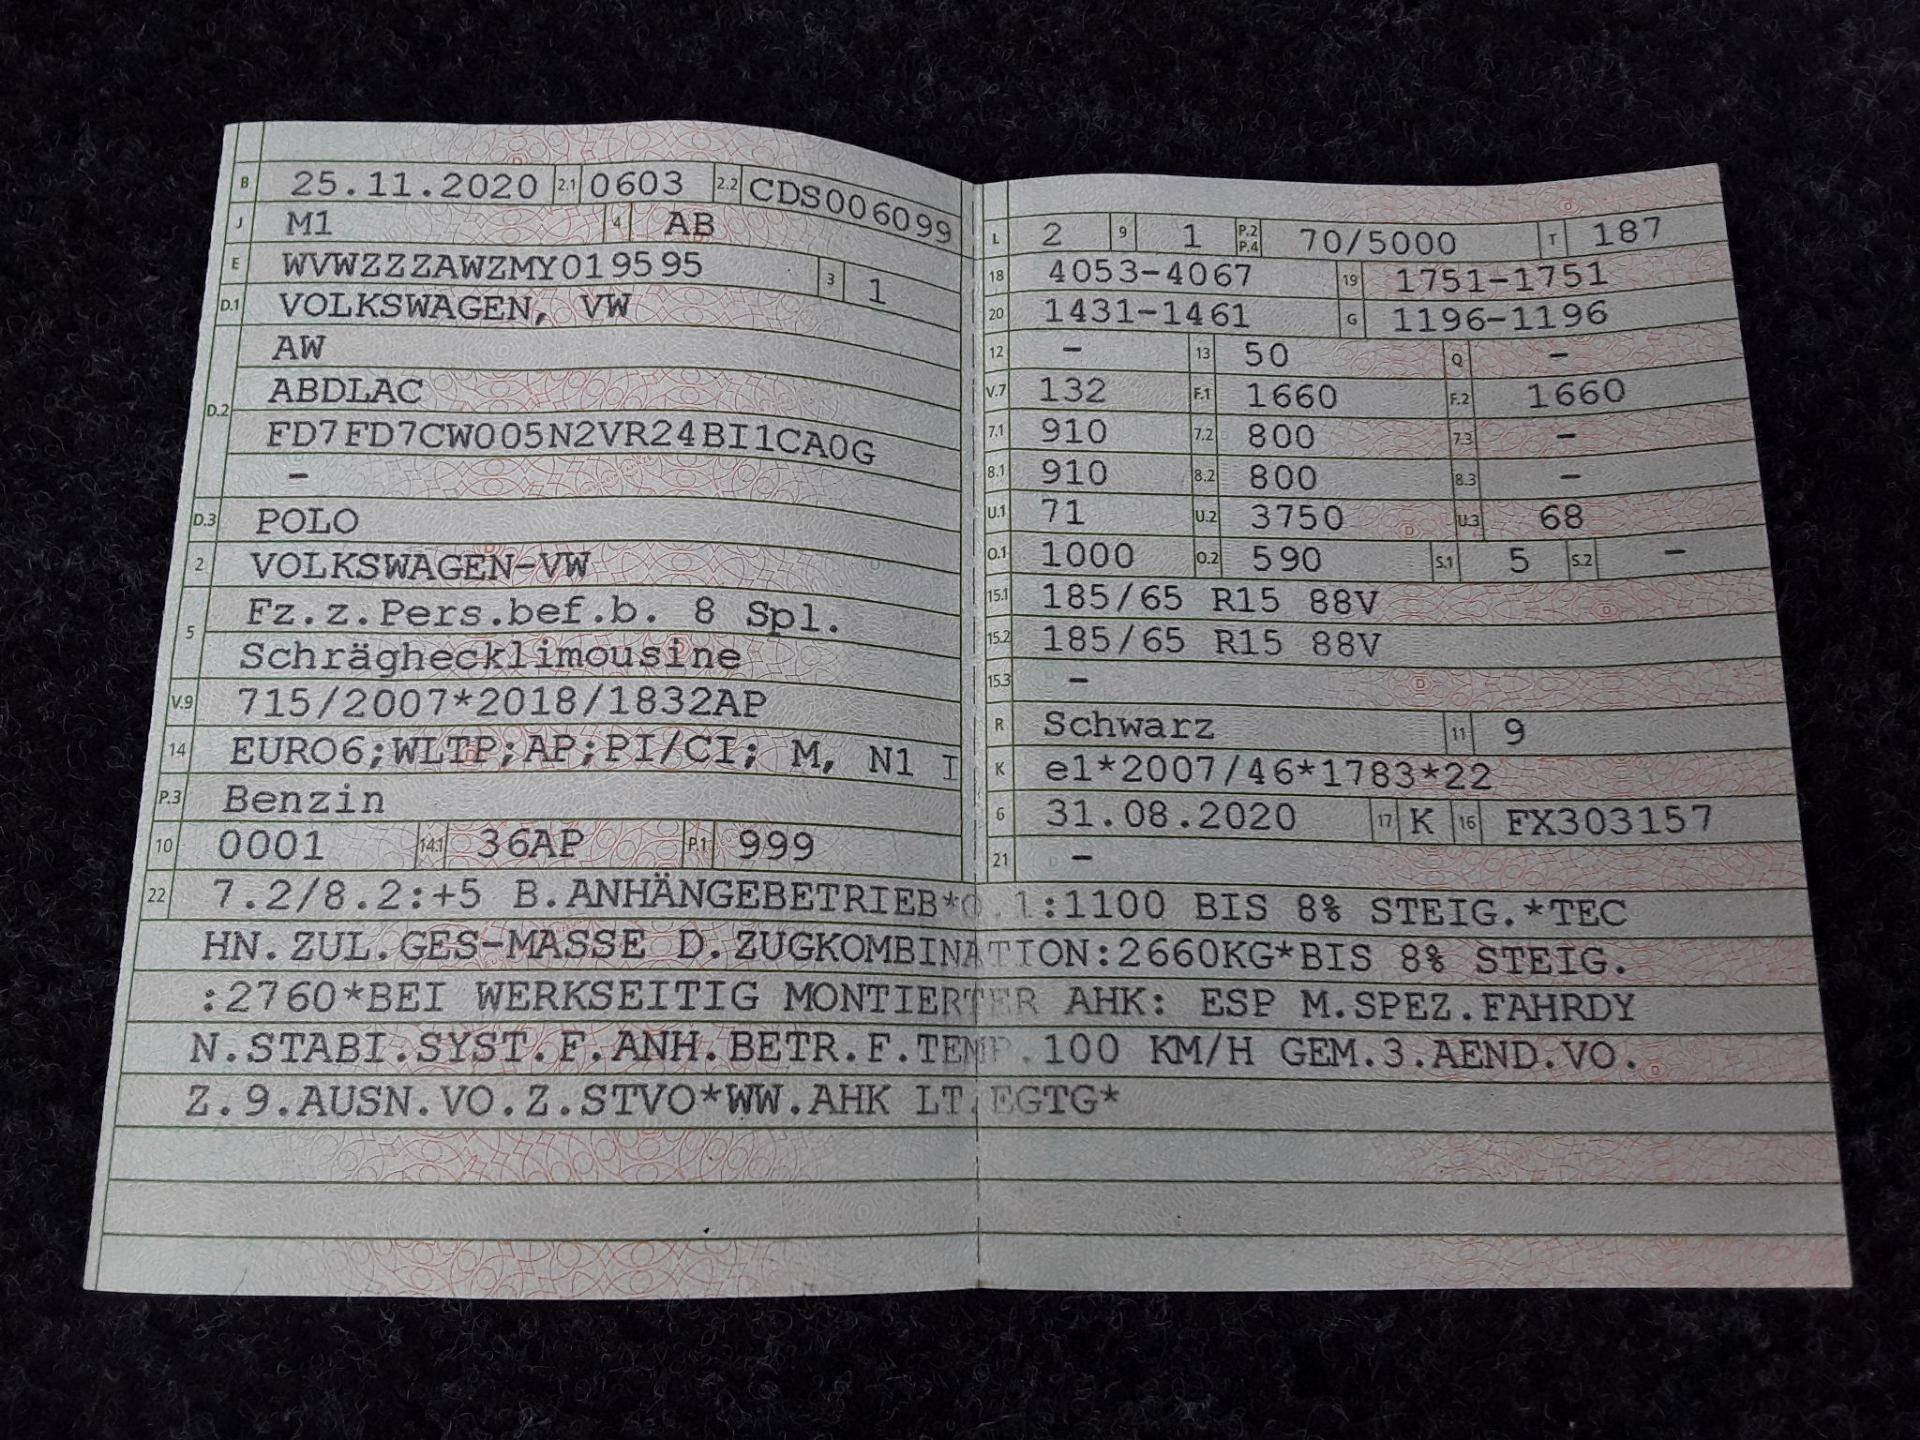 B 25.11.2020 2.1 0603 2.2 CDS006099
J M1 4 AB
E WVWZZZAWZMY019595 3 1
D.1 VOLKSWAGEN, VW
D.2 AW
ABDLAC
FD7FD7CW005N2VR24BI1CA0G
–
D.3 POLO
2 VOLKSWAGEN-VW
5 Fz.z.Pers.bef.b. 8 Spl.
Schräghecklimousine
V.9 715/2007*2018/1832AP
14 EURO6;WLTP;AP;PI/CI; M, N1 I
P.3 Benzin
10 0001 14.1 36AP P.1 999
L 2 9 1 P.2 P.4 70/5000 T 187
18 4053-4067 19 1751-1751
20 1431-1461 G 1196-1196
12 – 13 50 Q –
V.7 132 F.1 1660 F.2 1660
7.1 910 7.2 800 7.3 –
8.1 910 8.2 800 8.3 –
U.1 71 U.2 3750 U.3 68
O.1 1000 O.2 590 S.1 5 S.2 –
15.1 185/65 R15 88V
15.2 185/65 R15 88V
15.3 –
R Schwarz 11 9
K e1*2007/46*1783*22
6 31.08.2020 17 K 16 FX303157
21 –
22 7.2/8.2:+5 B.ANHÄNGEBETRIEB*O.1:1100 BIS 8% STEIG.*TEC
HN.ZUL.GES-MASSE D.ZUGKOMBINATION:2660KG*BIS 8% STEIG.
:2760*BEI WERKSEITIG MONTIERTER AHK: ESP M.SPEZ.FAHRDY
N.STABI.SYST.F.ANH.BETR.F.TEMP.100 KM/H GEM.3.AEND.VO.
Z.9.AUSN.VO.Z.STVO*WW.AHK LT.EGTG*